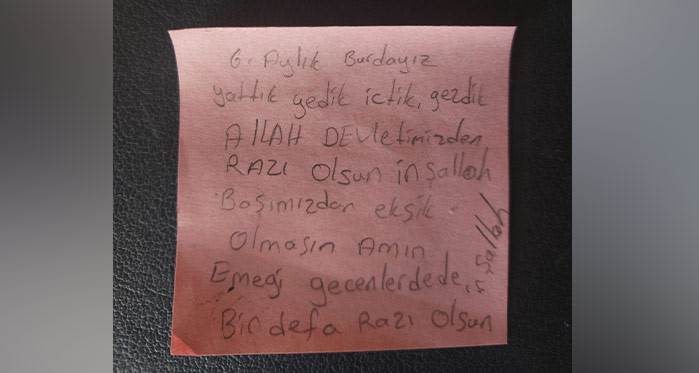 6. Aylık Burdayız
yattık yedik ictik, gezdik
AllAH DEVletimizden
RAZI Olsun inşallah
Başımızdan eksik
Olmasın Amin
Emeği gecenlerdede,
Bir defa Razı Olsun
işallah